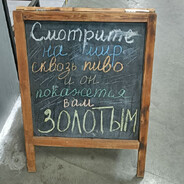 Смотрите
на мир
сквозь пиво
и он
покажется
вам
ЗОЛОТЫМ